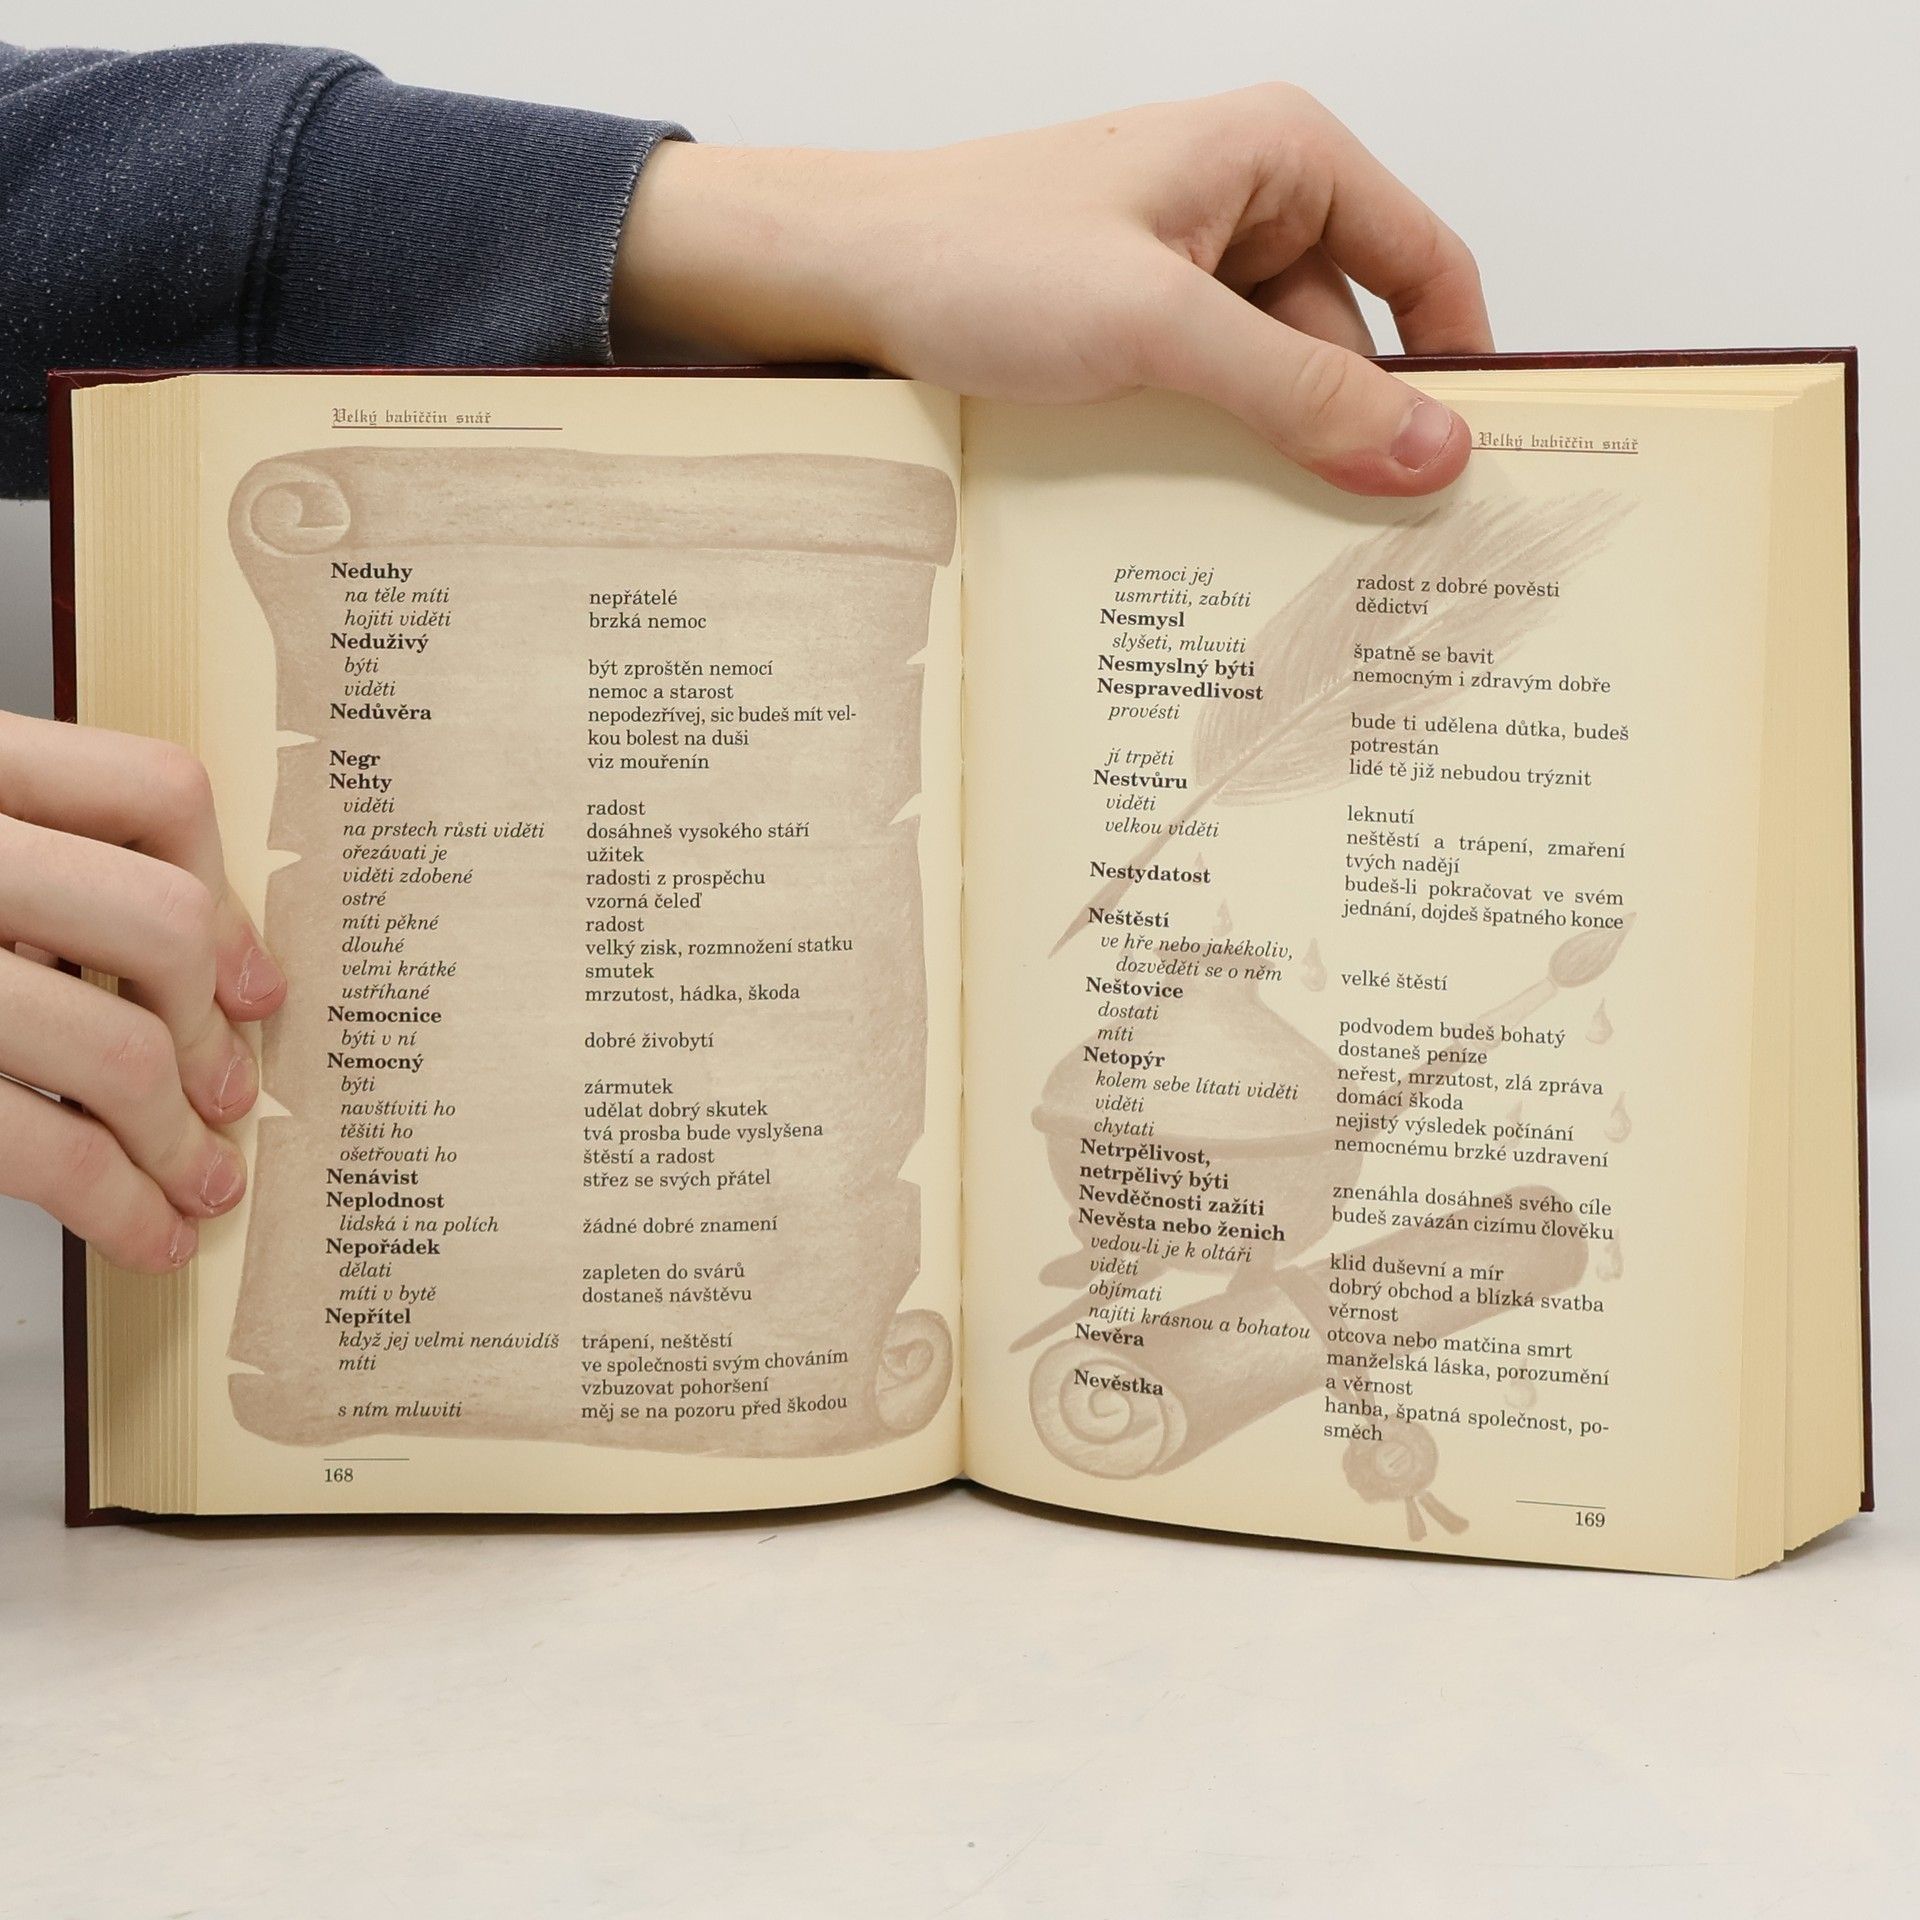 Velký babiččin snář
Neduhy
na těle míti nepřátelé
hojiti viděti brzká nemoc
Neduživý
býti být zproštěn nemocí
viděti nemoc a starost
Nedůvěra nepodezřívej, sic budeš mít vel-
kou bolest na duši
Negr viz mouřenín
Nehty
viděti radost
na prstech růsti viděti dosáhneš vysokého stáří
ořezávati je užitek
viděti zdobené radosti z prospěchu
ostré vzorná čeleď
míti pěkné radost
dlouhé velký zisk, rozmnožení statku
velmi krátké smutek
ustříhané mrzutost, hádka, škoda
Nemocnice
býti v ní dobré živobytí
Nemocný
býti zármutek
navštíviti ho udělat dobrý skutek
těšiti ho tvá prosba bude vyslyšena
ošetřovati ho štěstí a radost
Nenávist střez se svých přátel
Neplodnost
lidská i na polích žádné dobré znamení
Nepořádek
dělati zapleten do svárů
míti v bytě dostaneš návštěvu
Nepřítel
když jej velmi nenávidíš trápení, neštěstí
míti ve společnosti svým chováním
vzbuzovat pohoršení
s ním mluviti měj se na pozoru před škodou
168
Velký babiččin snář
přemoci jej radost z dobré pověsti
usmrtiti, zabíti dědictví
Nesmysl
slyšeti, mluviti špatně se bavit
Nesmyslný býti nemocným i zdravým dobře
Nespravedlivost
provésti bude ti udělena důtka, budeš
potrestán
jí trpěti lidé tě již nebudou trýznit
Nestvůru
viděti leknutí
velkou viděti neštěstí a trápení, zmaření
tvých nadějí
Nestydatost budeš-li pokračovat ve svém
jednání, dojdeš špatného konce
Neštěstí
ve hře nebo jakékoliv,
dozvěděti se o něm velké štěstí
Neštovice
dostati podvodem budeš bohatý
míti dostaneš peníze
Netopýr neřest, mrzutost, zlá zpráva
kolem sebe lítati viděti domácí škoda
viděti nejistý výsledek počínání
chytati nemocnému brzké uzdravení
Netrpělivost,
netrpělivý býti znenáhla dosáhneš svého cíle
Nevděčnosti zažíti budeš zavázán cizímu člověku
Nevěsta nebo ženich
vedou-li je k oltáři klid duševní a mír
viděti dobrý obchod a blízká svatba
objímati věrnost
najíti krásnou a bohatou otcova nebo matčina smrt
Nevěra manželská láska, porozumění
a věrnost
Nevěstka hanba, špatná společnost, po-
směch
169